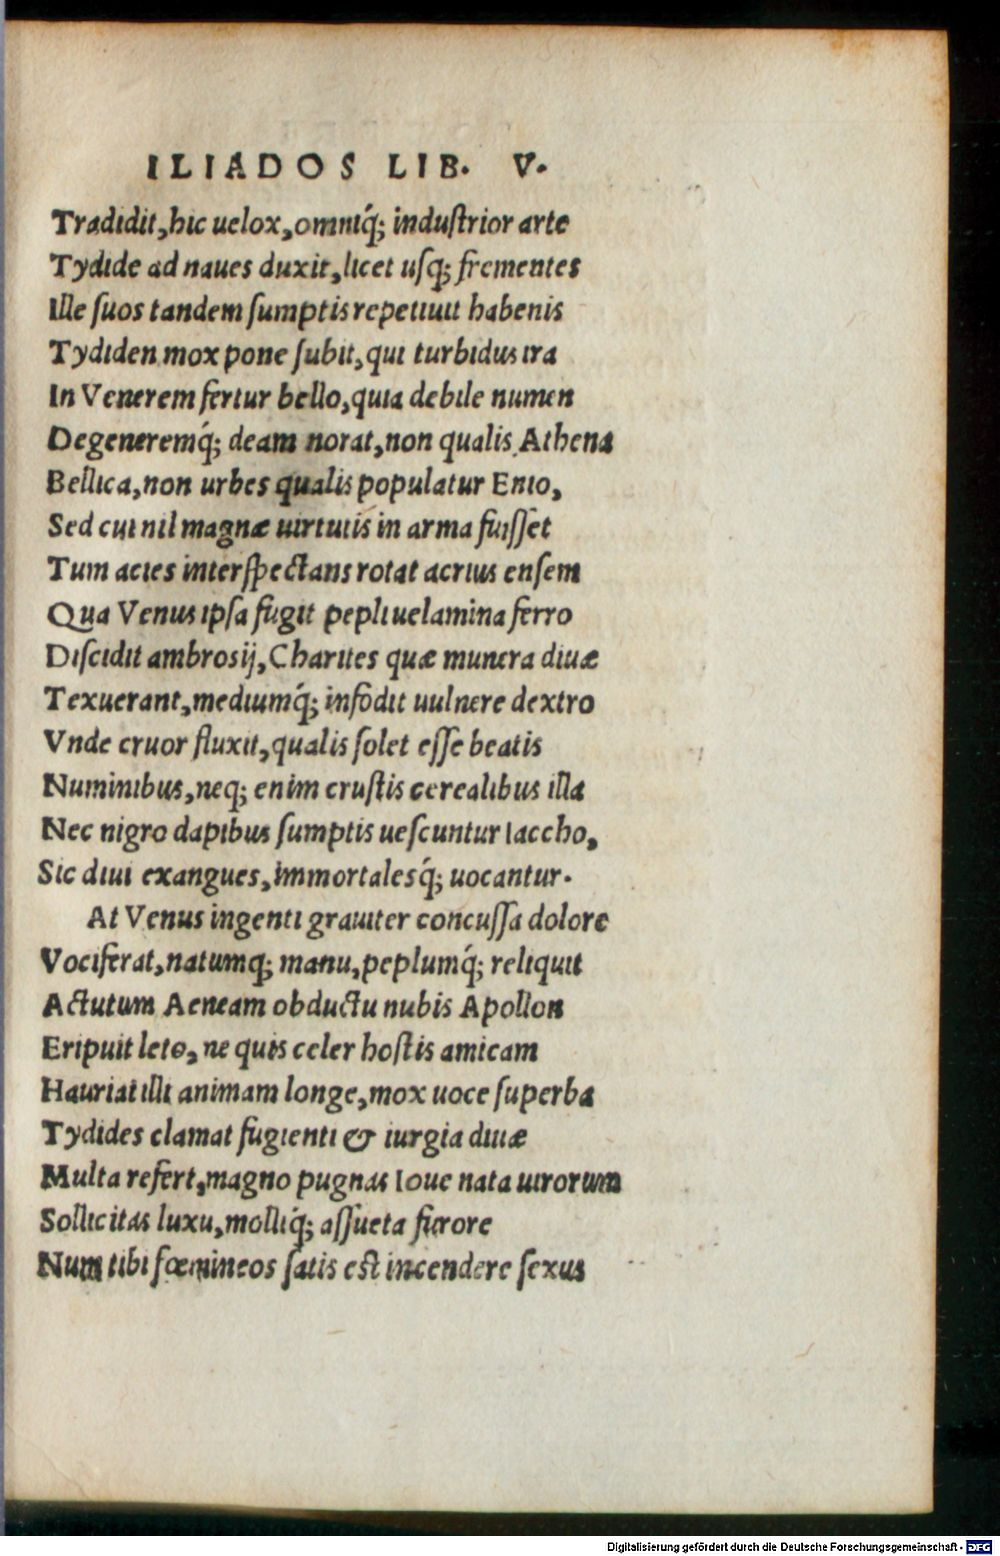 ILIADOS LIB. V.
Tradidit, hic uelox, omniq́; induſtrior arte
Tydide ad naues duxit, licet uſq; frementes
Ille ſuos tandem ſumptis repetiuit habenis
Tydiden mox pone ſubit, qui turbidus ira
In Venerem fertur bello, quia debile numen
Degeneremq́; deam norat, non qualis Athena
Bellica, non urbes qualis populatur Enio,
Sed cui nil magnæ uirtutis in arma fuiſſet
Tum acies interſpectans rotat acrius enſem
Qua Venus ipſa fugit pepli uelamina ferro
Diſcidit ambrosij, Charites quæ munera diuæ
Texuerant, mediumq́; infodit uulnere dextro
Vnde cruor fluxit, qualis ſolet eſſe beatis
Numinibus, neq; enim cruſtis cerealibus illa
Nec nigro dapibus ſumptis ueſcuntur Iaccho,
Sic diui exangues, immortalesq́; uocantur.
At Venus ingenti grauiter concuſſa dolore
Vociferat, natumq; manu, peplumq́; reliquit
Actutum Aeneam obductu nubis Apollon
Eripuit leto, ne quis celer hoſtis amicam
Hauriat illi animam longe, mox uoce ſuperba
Tydides clamat fugienti & iurgia diuæ
Multa refert, magno pugnas Ioue nata uirorum
Sollicitas luxu, molliq́; aſſueta furore
Num tibi fœmineos ſatis eſt incendere ſexus
Digitalisierung gefördert durch die Deutsche Forschungsgemeinschaft - DFG